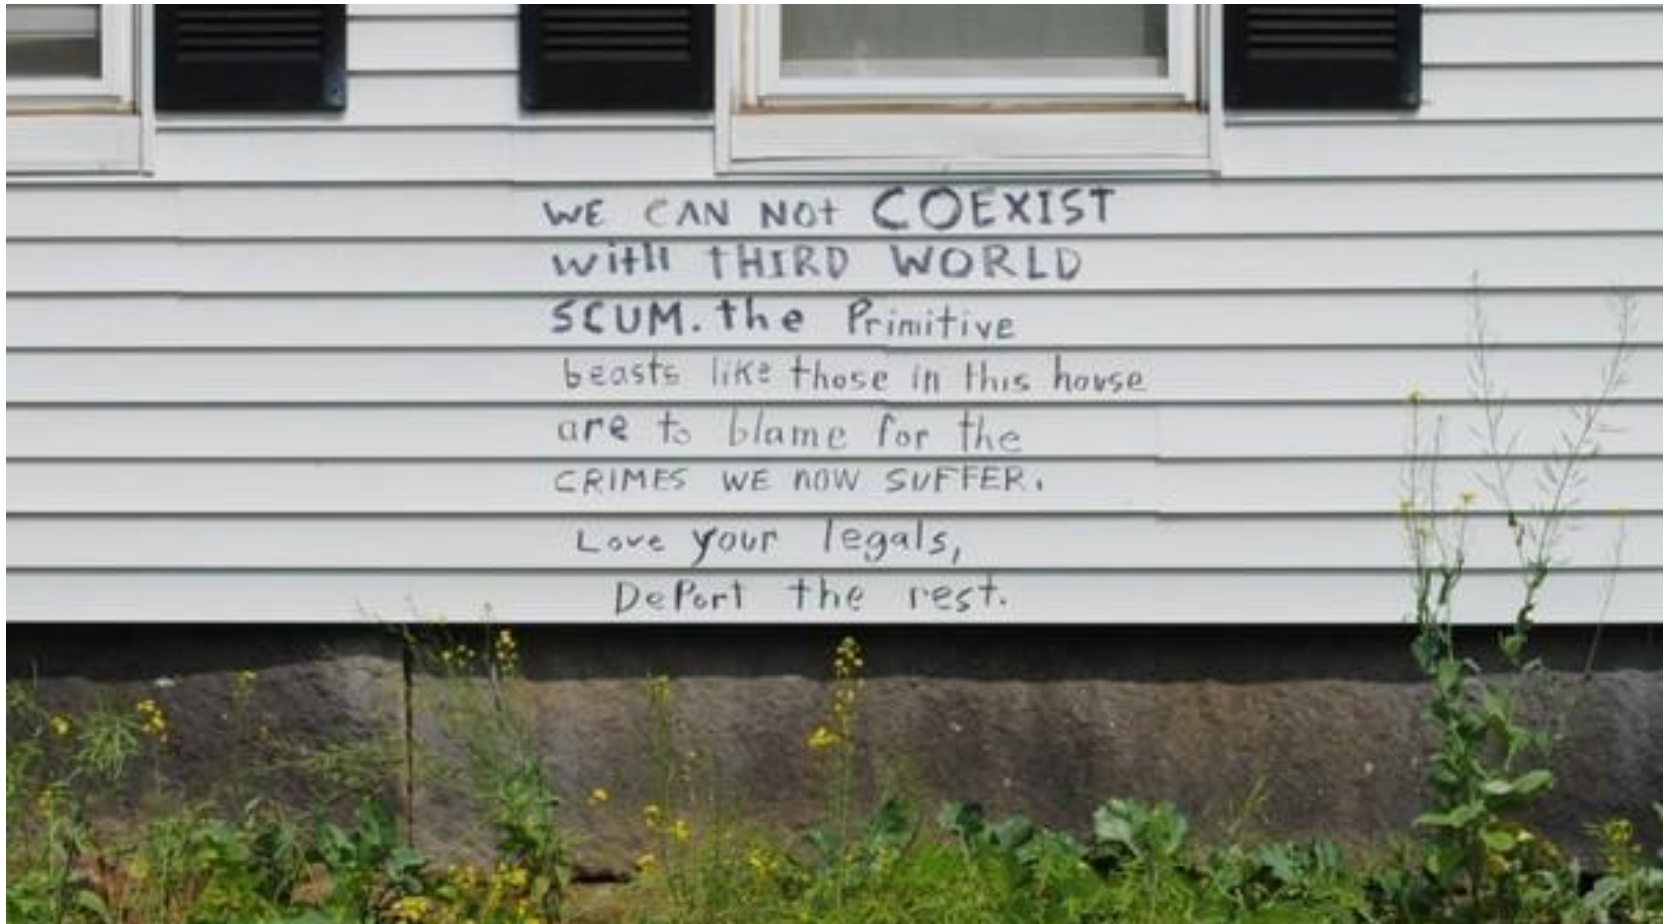 WE CAN NOt COEXIST
with tHIRD WORLD
SCUM. the Primitive
beasts like those in this house
are to blame for the
CRIMES WE nOW SUFFER.
Love your legals,
DePort the rest.